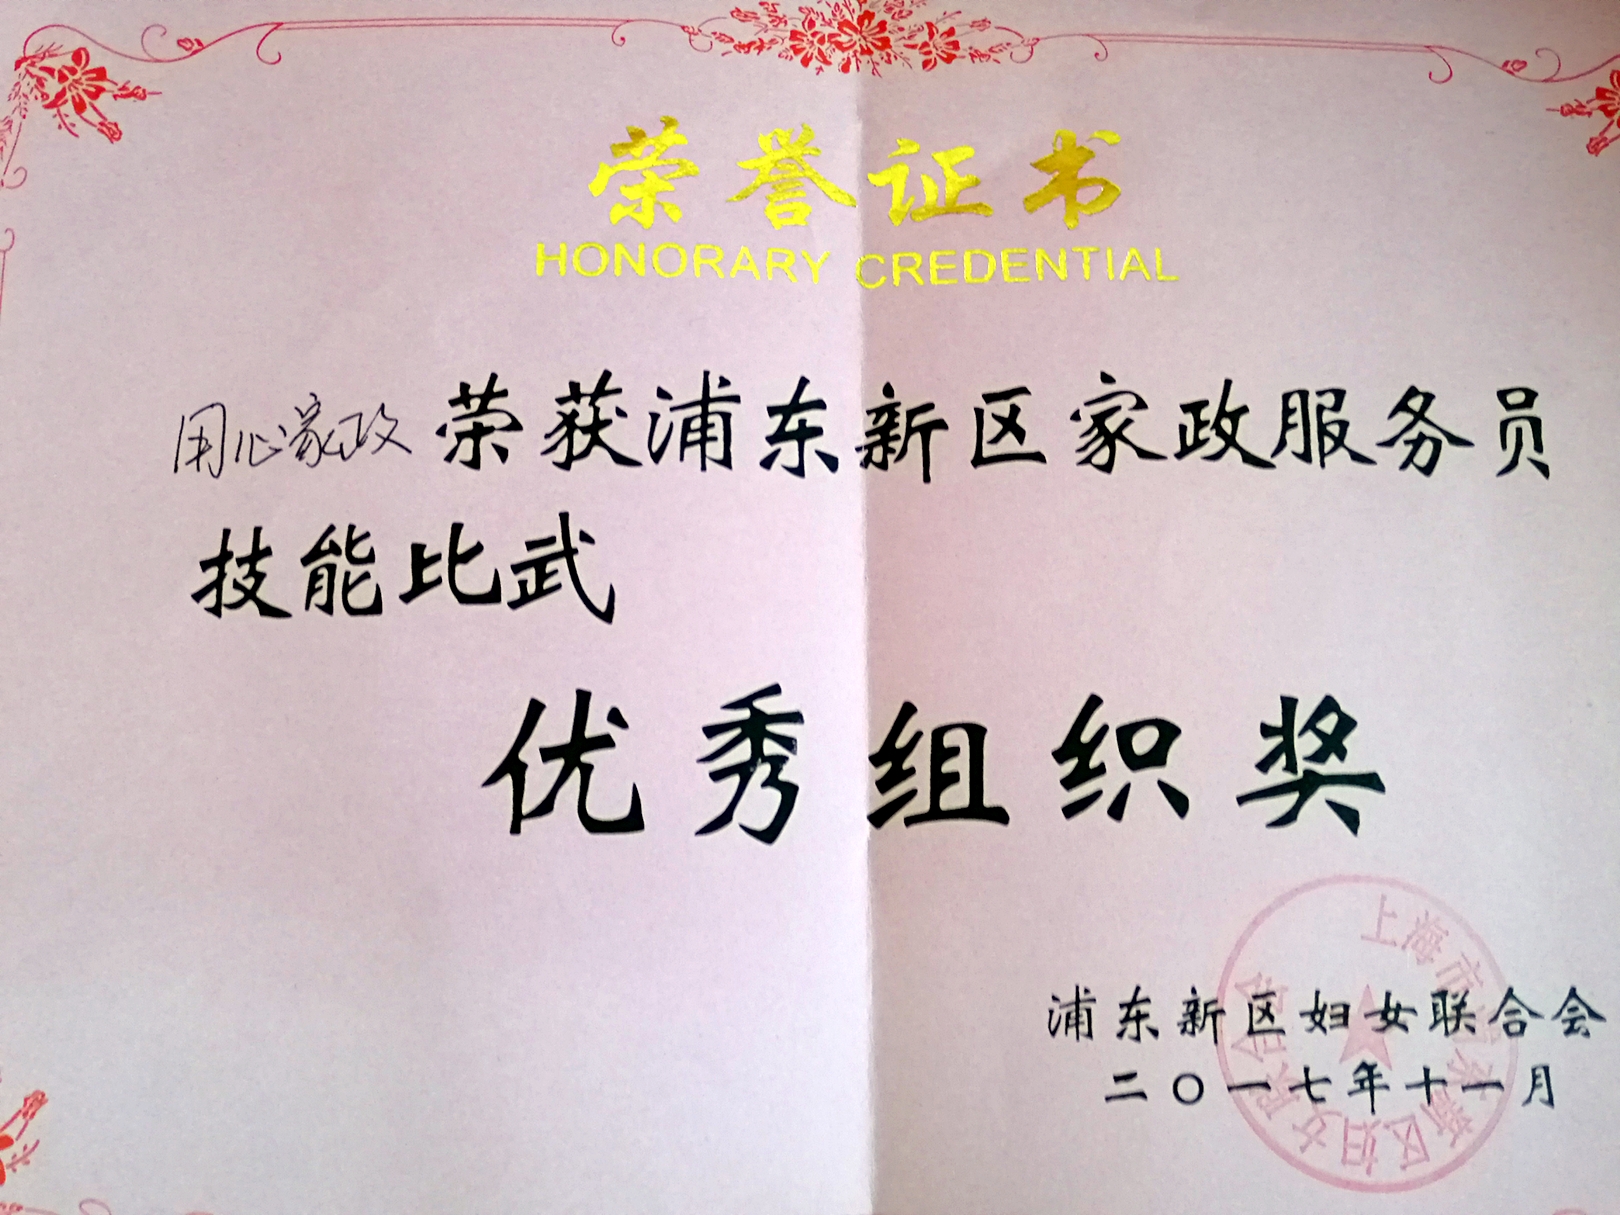 荣誉证书
HONORARY CREDENTIAL
用心家政 荣获浦东新区家政服务员
技能比武
优秀组织奖
浦东新区妇女联合会
二〇一七年十一月
上海市浦东新区妇女联合会